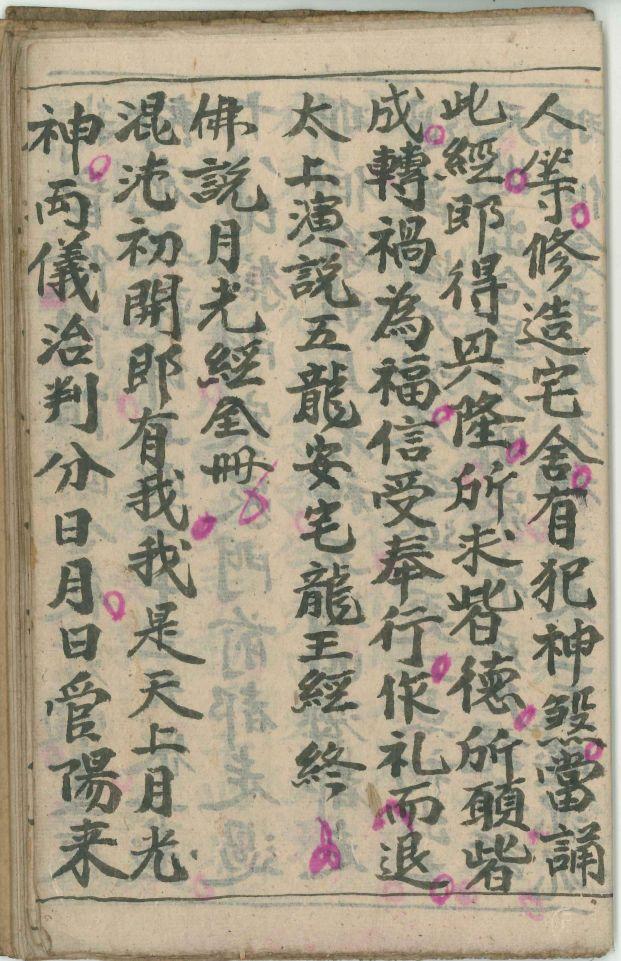 人等修造宅舍有犯神煞當誦
此經即得興隆所求皆德所願皆
成轉禍為福信受奉行作礼而退
太上演說五龍安宅龍王經終
佛説月光經全冊
混沌初開即有我我是天上月光
神両儀治判分日月日管陽来